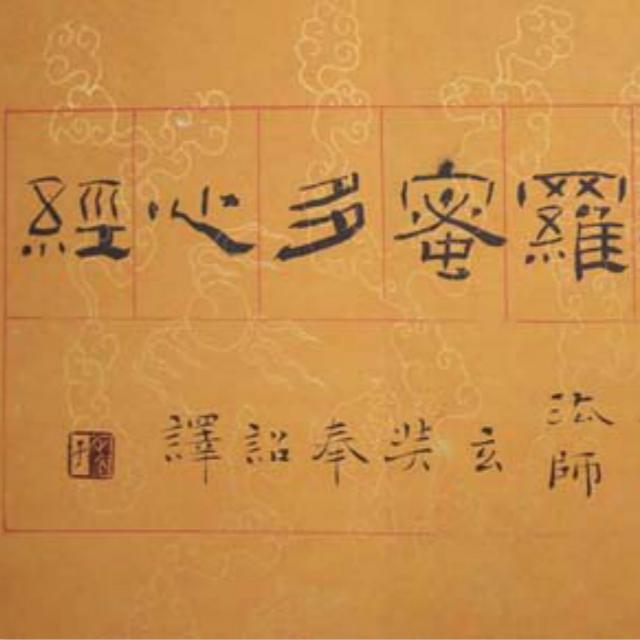 羅蜜多心經
法師玄奘奉詔譯